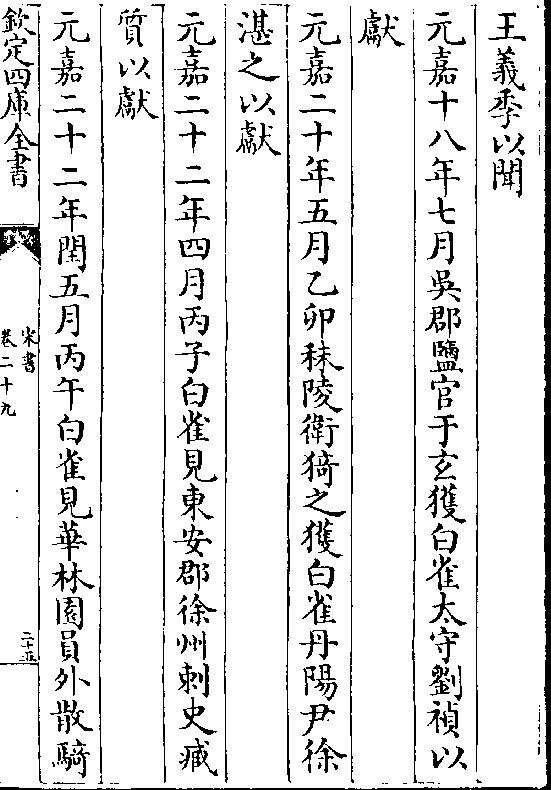 王義季以聞
元嘉十八年七月吳郡鹽官于玄獲白雀太守劉禎以
獻
元嘉二十年五月乙卯秣陵衛猗之獲白雀丹陽尹徐
湛之以獻
元嘉二十二年四月丙子白雀見東安郡徐州刺史臧
質以獻
元嘉二十二年閏五月丙午白雀見華林園員外散騎
欽定四庫全書
宋書
卷二十九
二十五